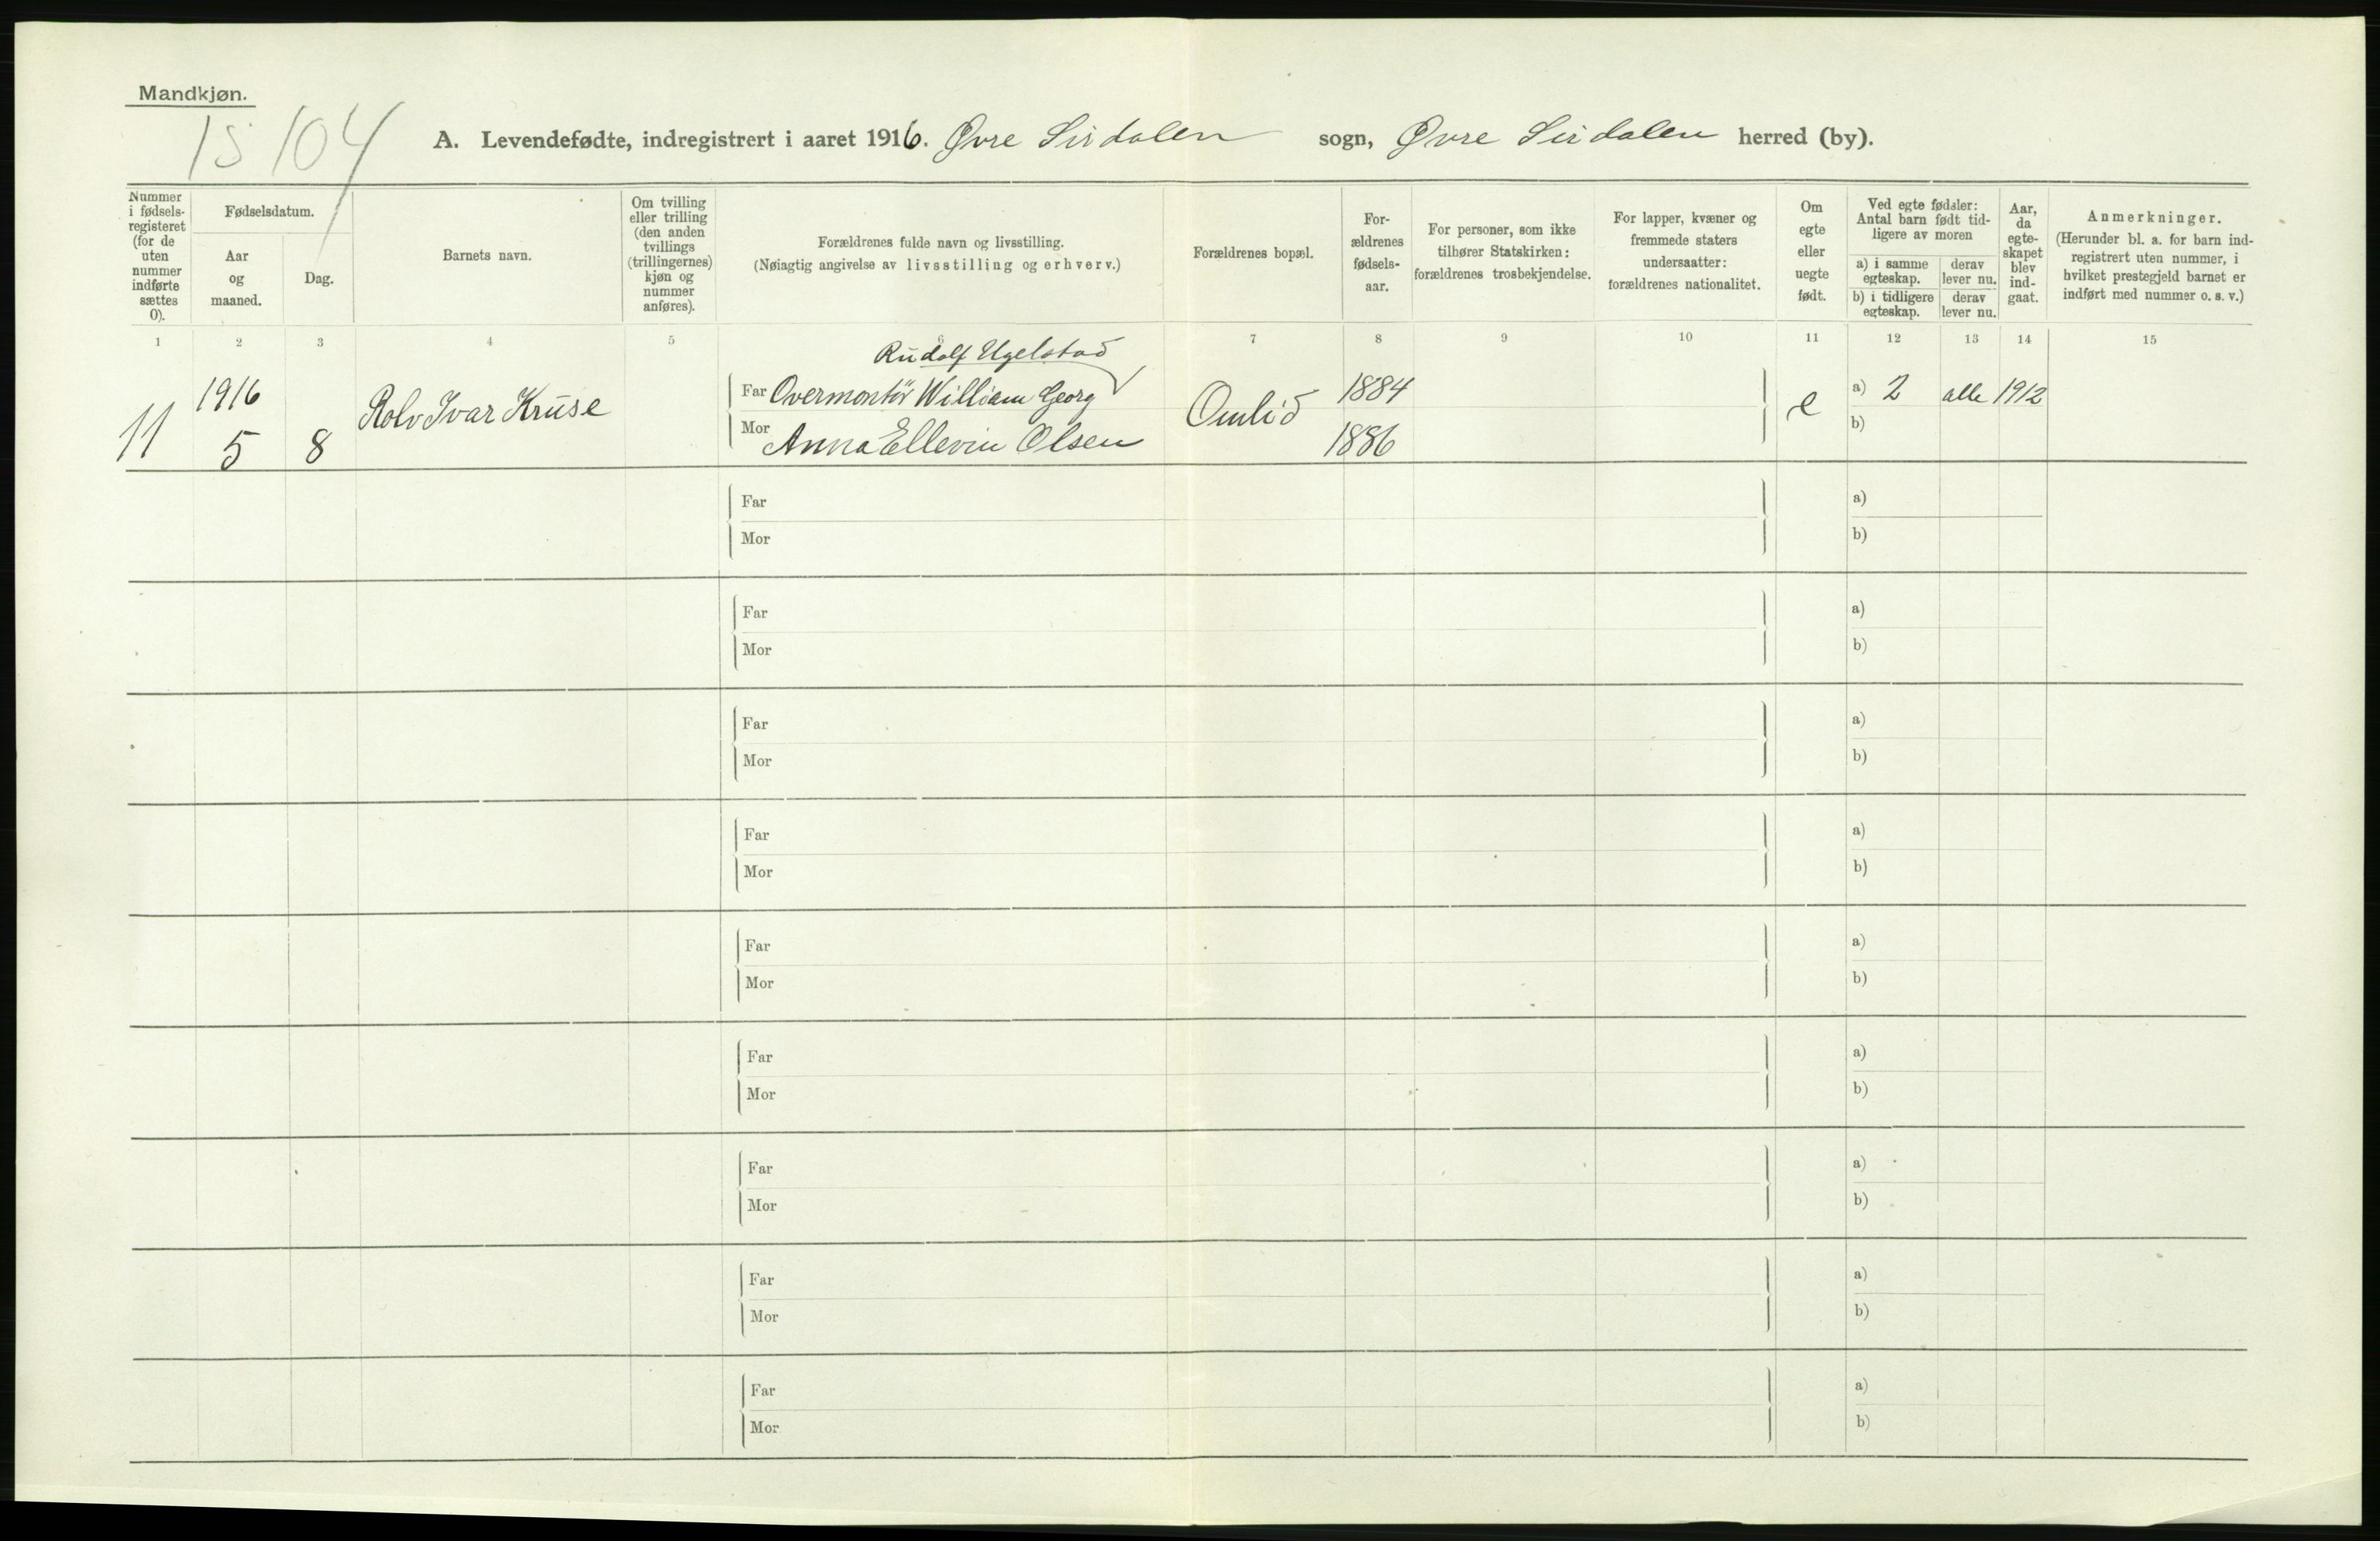 Mandkjøn.
15 104
A. Levendefødte, indregistrert i aaret 1916. Øvre Sirdalen sogn, Øvre Sirdalen herred (by).
Nummer i fødsels-registeret (for de uten nummer indførte sættes 0).
Fødselsdatum.
Aar og maaned.
Dag.
Barnets navn.
Om tvilling eller trilling (den anden tvillings (trillingernes) kjøn og nummer anføres).
Forældrenes fulde navn og livsstilling.
(Nøiagtig angivelse av livsstilling og erhverv.)
Forældrenes bopæl.
For-ældrenes fødsels-aar.
For personer, som ikke tilhører Statskirken: forældrenes trosbekjendelse.
For lapper, kvæner og fremmede staters undersaatter: forældrenes nationalitet.
Om egte eller uegte født.
Ved egte fødsler: Antal barn født tid-ligere av moren
a) i samme egteskap.
derav lever nu.
b) i tidligere egteskap.
derav lever nu.
Aar, da egte-skapet blev ind-gaat.
Anmerkninger.
(Herunder bl. a. for barn ind-registrert uten nummer, i hvilket prestegjeld barnet er indført med nummer o. s. v.)
1 2 3 4 5 6 7 8 9 10 11 12 13 14 15
Rudolf Ugelstad
11 1916 5 8 Rolv Ivar Kruse
Far Overmontör William Georg
Mor Anna Ellevine Olsen
Omlid 1884 1886 e a) 2 alle 1912
b)
Far a)
Mor b)
Far a)
Mor b)
Far a)
Mor b)
Far a)
Mor b)
Far a)
Mor b)
Far a)
Mor b)
Far a)
Mor b)
Far a)
Mor b)
Far a)
Mor b)